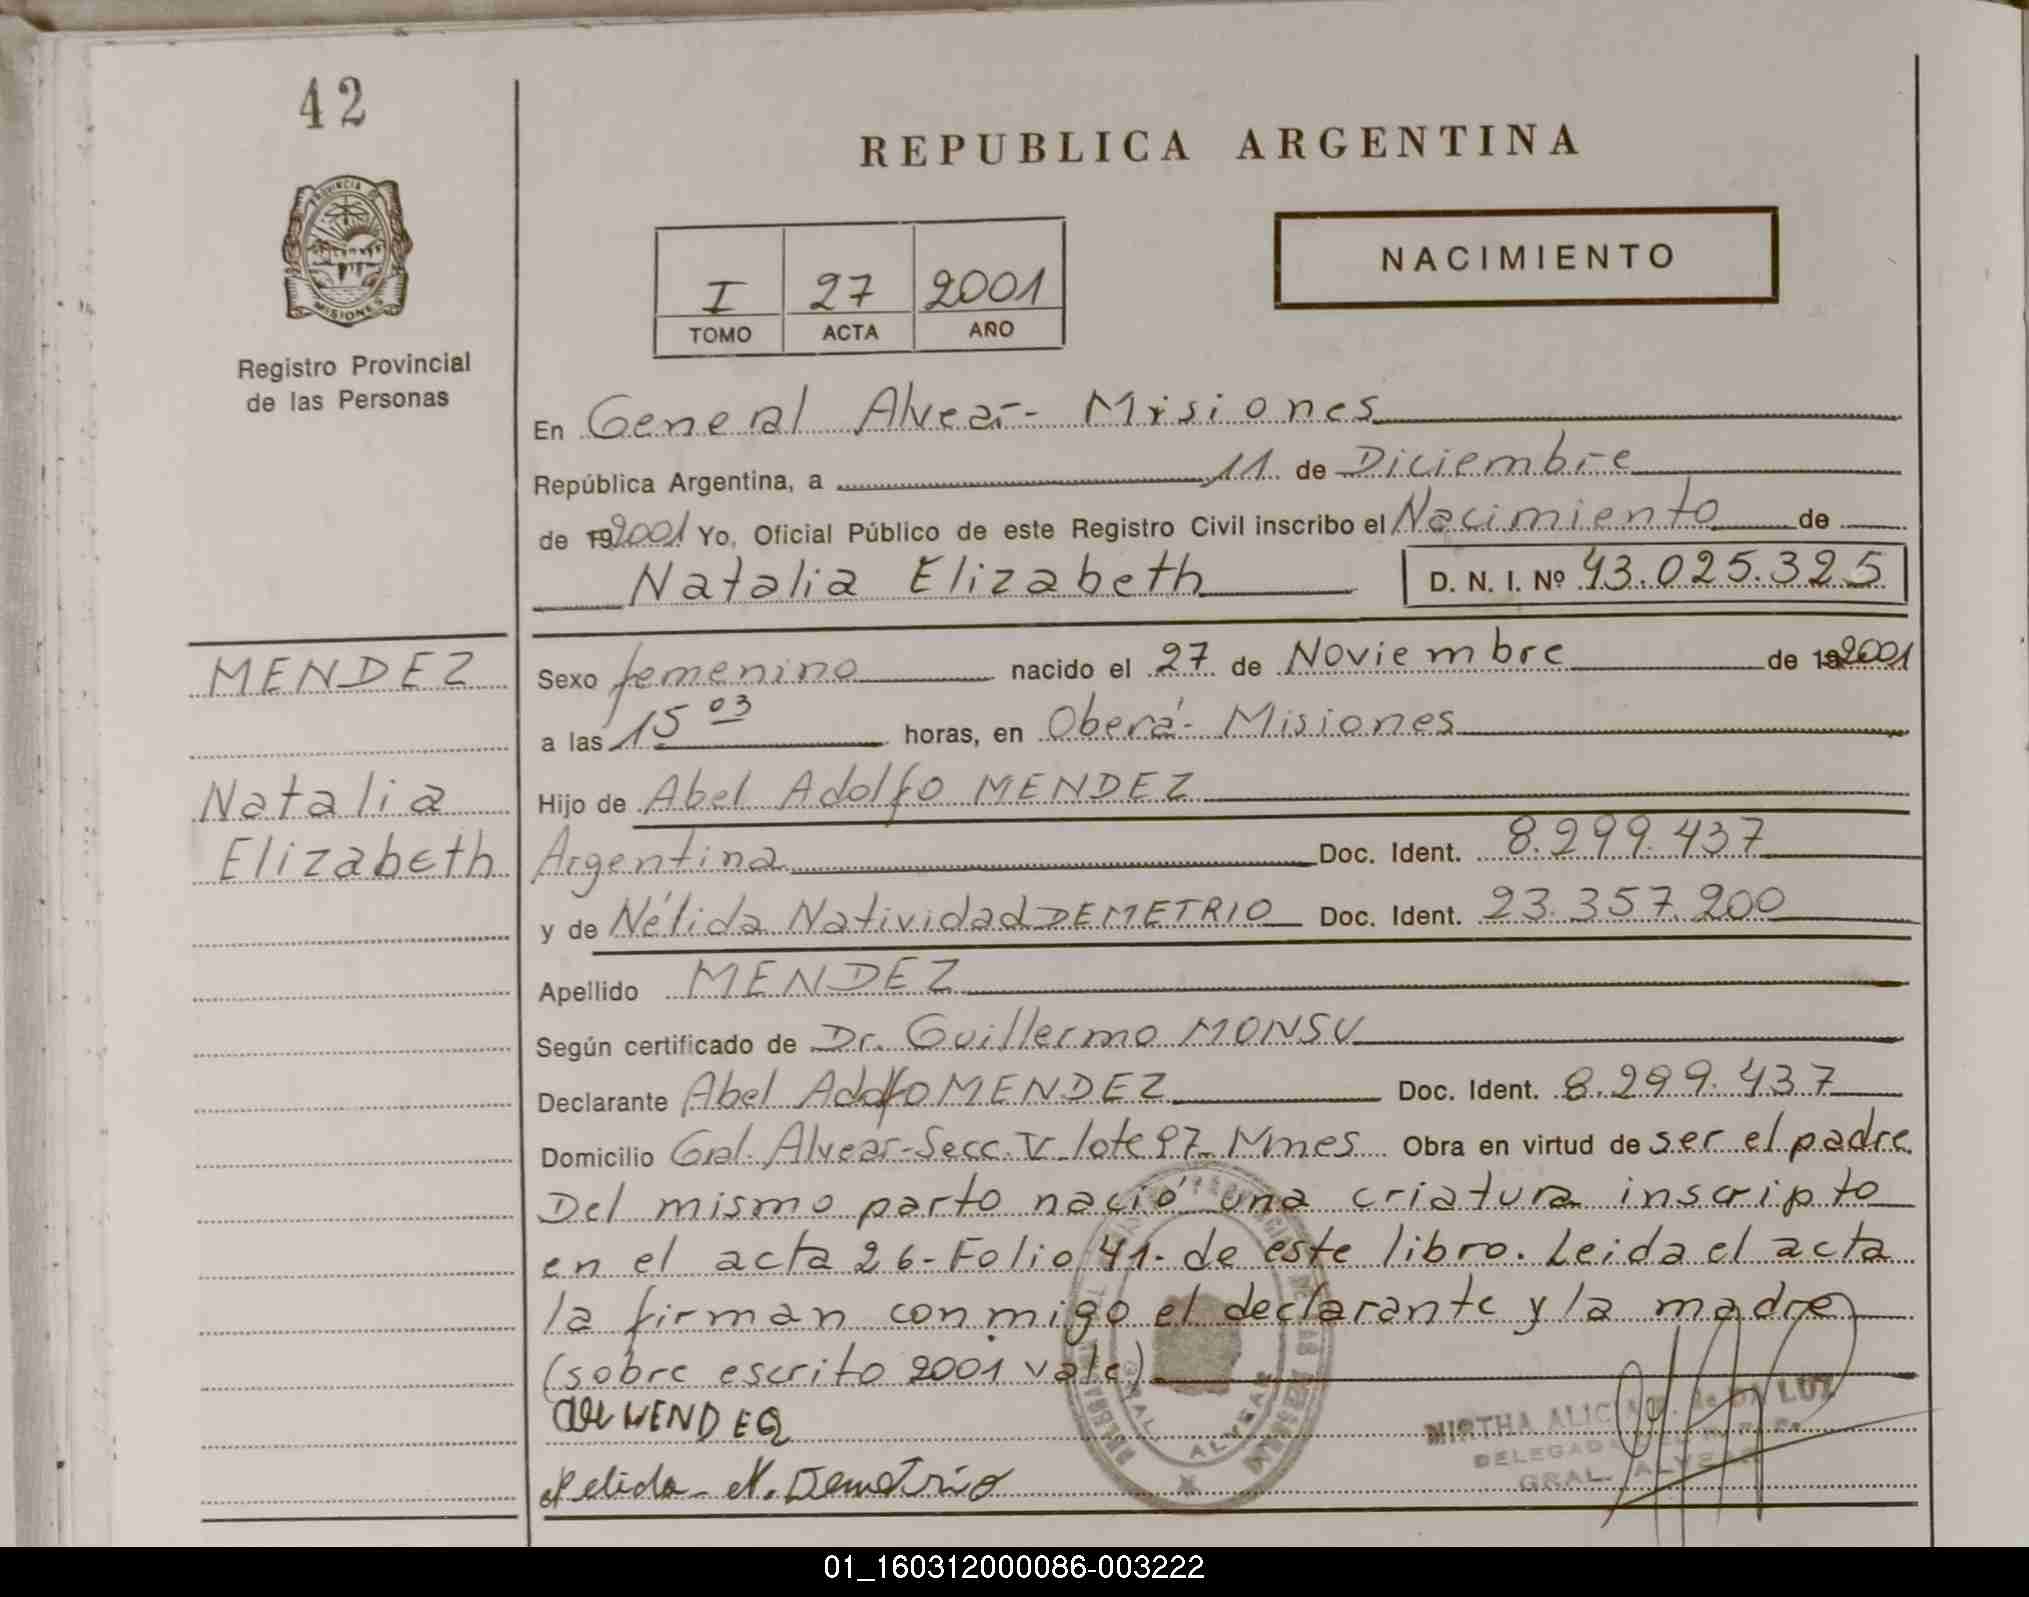 42
REPUBLICA ARGENTINA
PROVINCIA DE
MISIONES
NACIMIENTO
I 27 2001
TOMO ACTA AÑO
Registro Provincial
de las Personas
En General Alvear - Misiones
República Argentina, a 11 de Diciembre
de 192001 Yo, Oficial Público de este Registro Civil inscribo el Nacimiento de
Natalia Elizabeth D. N. I. Nº 43.025.325
MENDEZ
Natalia
Elizabeth
Sexo femenino nacido el 27 de Noviembre de 192001
a las 15 03 horas, en Oberá - Misiones
Hijo de Abel Adolfo MENDEZ
Argentina Doc. Ident. 8.299.437
y de Nélida Natividad DEMETRIO Doc. Ident. 23.357.200
Apellido MENDEZ
Según certificado de Dr. Guillermo MONSU
Declarante Abel Adolfo MENDEZ Doc. Ident. 8.299.437
Domicilio Gral. Alvear - Secc. V - lote 97 - Mnes Obra en virtud de ser el padre.
Del mismo parto nació una criatura inscripto
en el acta 26 - Folio 41 - de este libro. Leida el acta
la firman conmigo el declarante y la madre
(sobre escrito 2001 vale)
MENDEZ
Nelida N. Demetrio
GRAL. ALVEAR
MIRTHA ALICIA de DA LUZ
DELEGADA
GRAL. ALVEAR
01_160312000086-003222